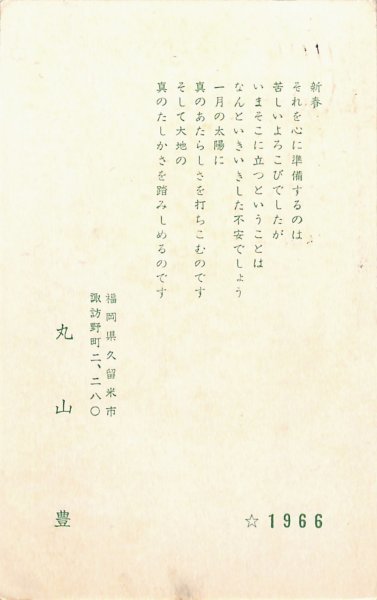 新春
それを心に準備するのは
苦しいよろこびでしたが
いまそこに立つということは
なんといきいきした不安でしょう
一月の太陽に
真のあたらしさを打ちこむのです
そして大地の
真のたしかさを踏みしめるのです
福岡県久留米市
諏訪野町二、二八〇
丸山 豊
☆1966